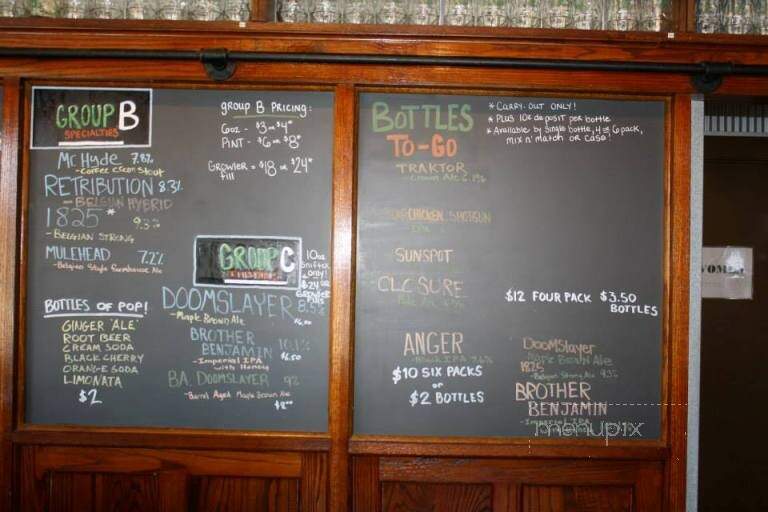 GROUP B
SPECIALTIES
Mr Hyde 7.8%
-Coffee Cream Stout
RETRIBUTION 8.3%
-BELGIAN HYBRID
1825* 9.3%
-BELGIAN STRONG
MULEHEAD 7.2%
-Belgian Style Farmhouse Ale
BOTTLES OF POP!
GINGER 'ALE'
ROOT BEER
CREAM SODA
BLACK CHERRY
ORANGE SODA
LIMONATA
$2
group B PRICING:
6oz - $3 or $4*
PINT - $6 or $8*
GROWLER = $18 or $24*
fill
GROUP C
10oz
Snifter
only!
$24 or
GROWLER
Fills
DOOMSLAYER 8.5%
-Maple Brown Ale $6.00
BROTHER
BENJAMIN 10.1%
-Imperial IPA $6.50
with Honey
B.A. DOOMSLAYER 9%
-Barrel Aged Maple Brown Ale
$8.00
BOTTLES
TO-GO
* CARRY-OUT ONLY!
* PLUS 10¢ deposit per bottle
* Available by Single bottle, 4 or 6 pack,
mix n' match or case!
TRAKTOR
CHICKEN SHOTGUN
SUNSPOT
CLOSURE
ANGER
-Black IPA 7.6%
$10 SIX PACKS
or
$2 BOTTLES
$12 FOUR PACK $3.50
BOTTLES
DOOMSlayer
1825
-Belgian Strong Ale 9.3%
BROTHER
BENJAMIN
-Imperial IPA
WOMEN
menupix